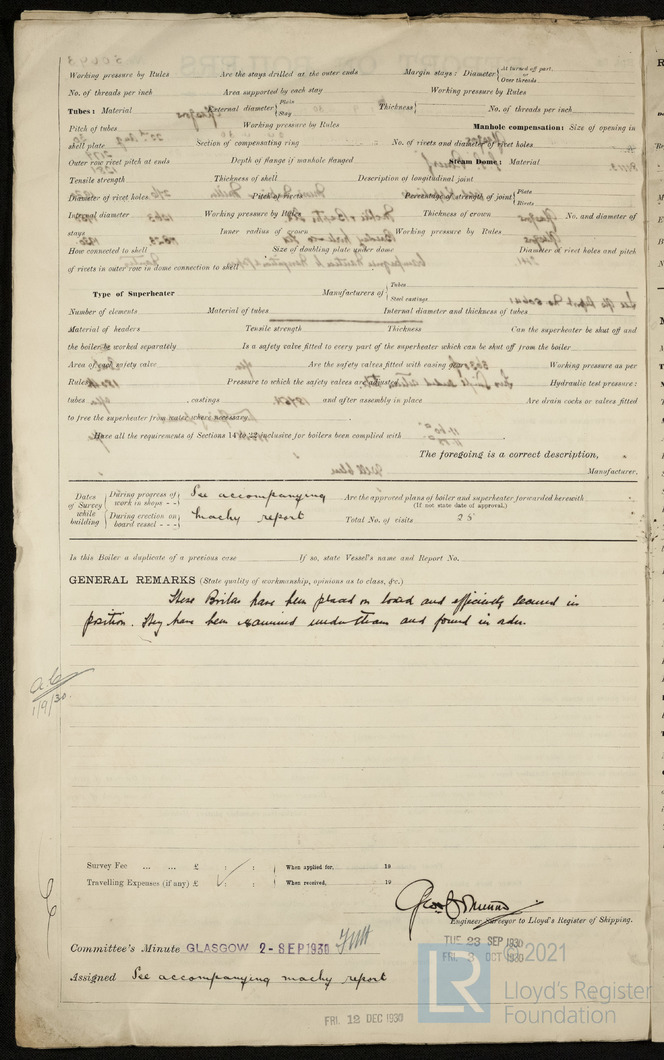 Working pressure by Rules Are the stays drilled at the outer ends Margin stays: Diameter { At turned off part, or Over threads
No. of threads per inch Area supported by each stay Working pressure by Rules
Tubes: Material External diameter { Plain Stay Thickness { No. of threads per inch
Pitch of tubes Working pressure by Rules Manhole compensation: Size of opening in
shell plate Section of compensating ring No. of rivets and diameter of rivet holes
Outer row rivet pitch at ends Depth of flange if manhole flanged Steam Dome: Material
Tensile strength Thickness of shell Description of longitudinal joint
Diameter of rivet holes Pitch of rivets Percentage of strength of joint { Plate Rivets
Internal diameter Working pressure by Rules Thickness of crown No. and diameter of
stays Inner radius of crown Working pressure by Rules
How connected to shell Size of doubling plate under dome Diameter of rivet holes and pitch
of rivets in outer row in dome connection to shell
Type of Superheater Manufacturers of { Tubes Steel castings
Number of elements Material of tubes Internal diameter and thickness of tubes
Material of headers Tensile strength Thickness Can the superheater be shut off and
the boiler be worked separately Is a safety valve fitted to every part of the superheater which can be shut off from the boiler
Area of each safety valve Are the safety valves fitted with easing gear Working pressure as per
Rules Pressure to which the safety valves are adjusted Hydraulic test pressure:
tubes castings and after assembly in place Are drain cocks or valves fitted
to free the superheater from water where necessary
Have all the requirements of Sections 14 to 22 inclusive for boilers been complied with
The foregoing is a correct description,
Manufacturer.
Dates of Survey while building { During progress of work in shops - - See accompanying Are the approved plans of boiler and superheater forwarded herewith
(If not state date of approval.)
During erection on board vessel - - - machy report Total No. of visits 25
Is this Boiler a duplicate of a previous case If so, state Vessel's name and Report No.
GENERAL REMARKS (State quality of workmanship, opinions as to class, &c.)
These Boilers have been placed on board and efficiently secured in
position. They have been examined under steam and found in order.
1/9/30
Survey Fee ... ... £ : : When applied for, 19
Travelling Expenses (if any) £ : : When received, 19
Engineer Surveyor to Lloyd's Register of Shipping.
Committee's Minute GLASGOW 2 - SEP 1930
TUE 23 SEP 1930
FRI. 3 OCT 1930
Assigned See accompanying machy report
FRI. 12 DEC 1930
© 2021
LR
Lloyd's Register
Foundation